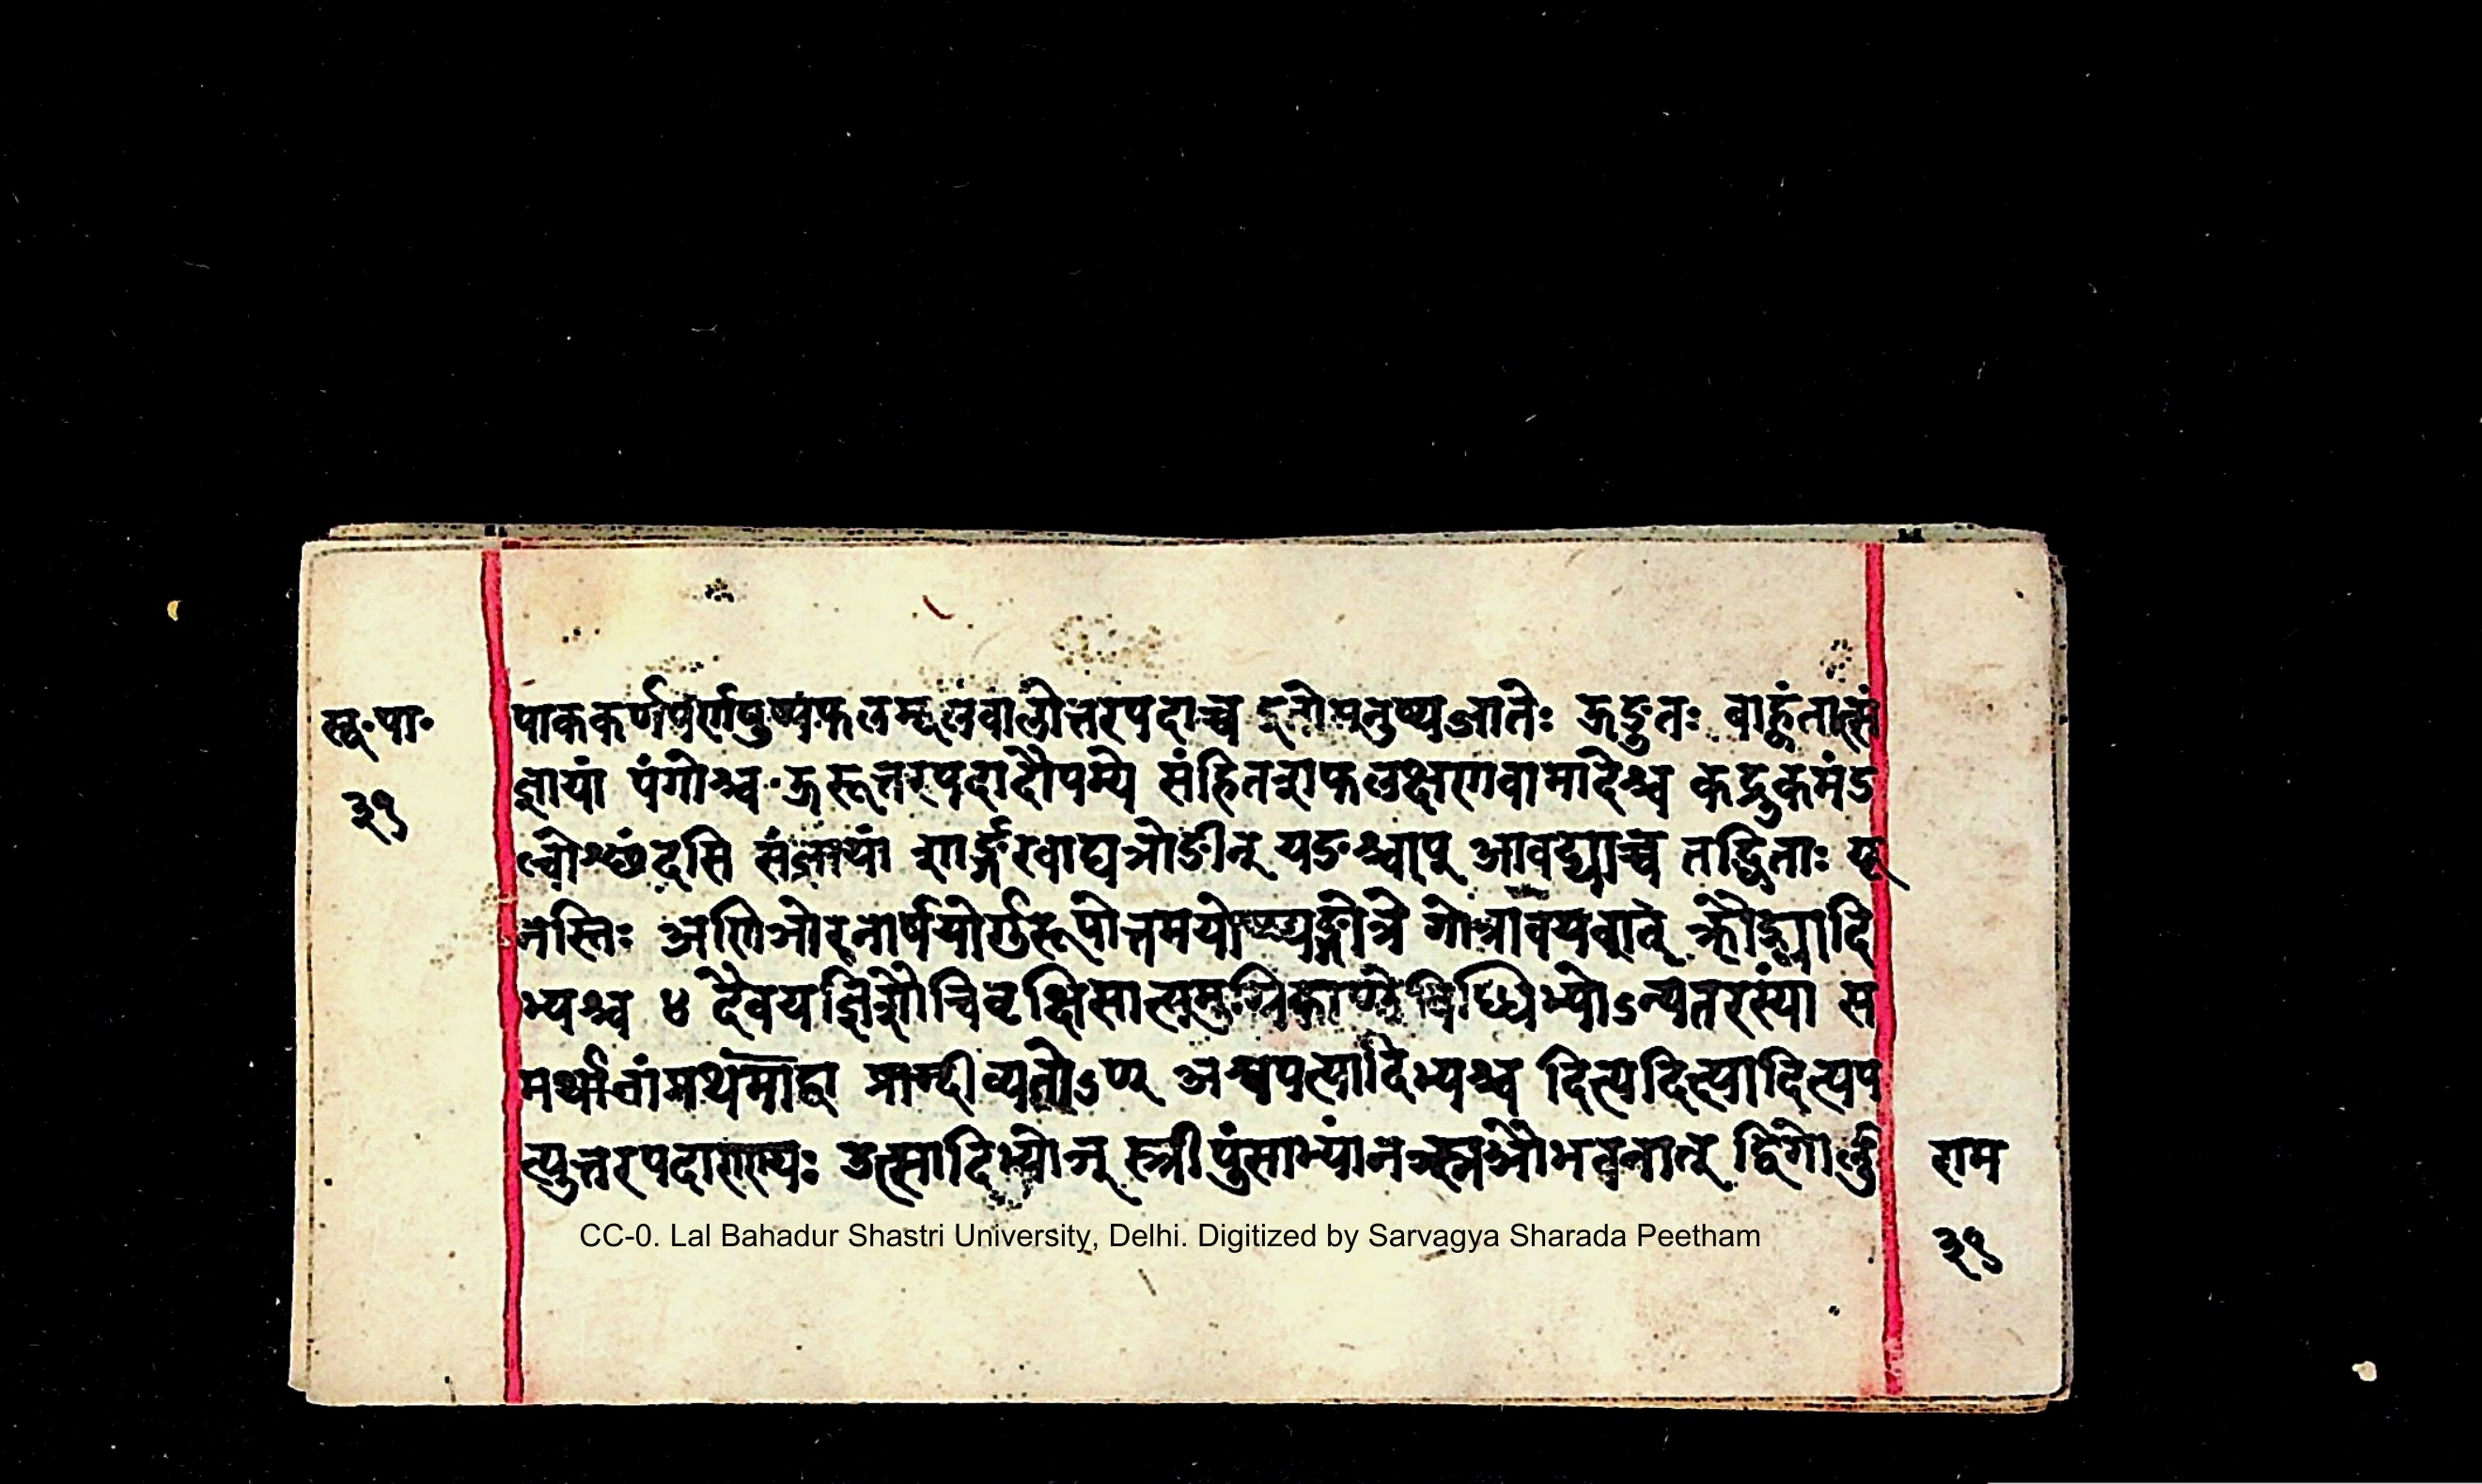 सू॰पा॰
३९
पाककर्णपर्णपुष्पफलमूलवालोत्तरपदाच्च इतोमनुष्यजातेः ऊङुतः बाह्वंतात्सं
ज्ञायां पंगोश्च ऊरूत्तरपदादौपम्ये संहितशफलक्षणवामादेश्च कद्रुकमंड
ल्वोश्छंदसि संज्ञायां शार्ङ्गरवाद्यञोङीन् यङश्चाप् आवट्याच्च तद्धिताः यू
नस्तिः अणिञोरनार्षयोर्गुरूपोत्तमयोष्ष्यङ्गोत्रे गोत्रावयवात् क्रौड्यादि
भ्यश्च ४ दैवयज्ञिशौचिवृक्षिसात्यमुग्रिकाण्ठेविध्धिभ्योऽन्यतरस्यां स
मर्थानांप्रथमाद्वा प्राग्दीव्यतोऽण् अश्वपत्यादिभ्यश्च दित्यदित्यादित्यप
त्युत्तरपदाण्ण्यः उत्सादिभ्योञ् स्त्रीपुंसाभ्यांनञ्स्नञौभवनात् द्विगोर्लु
राम
३९
CC-0. Lal Bahadur Shastri University, Delhi. Digitized by Sarvagya Sharada Peetham